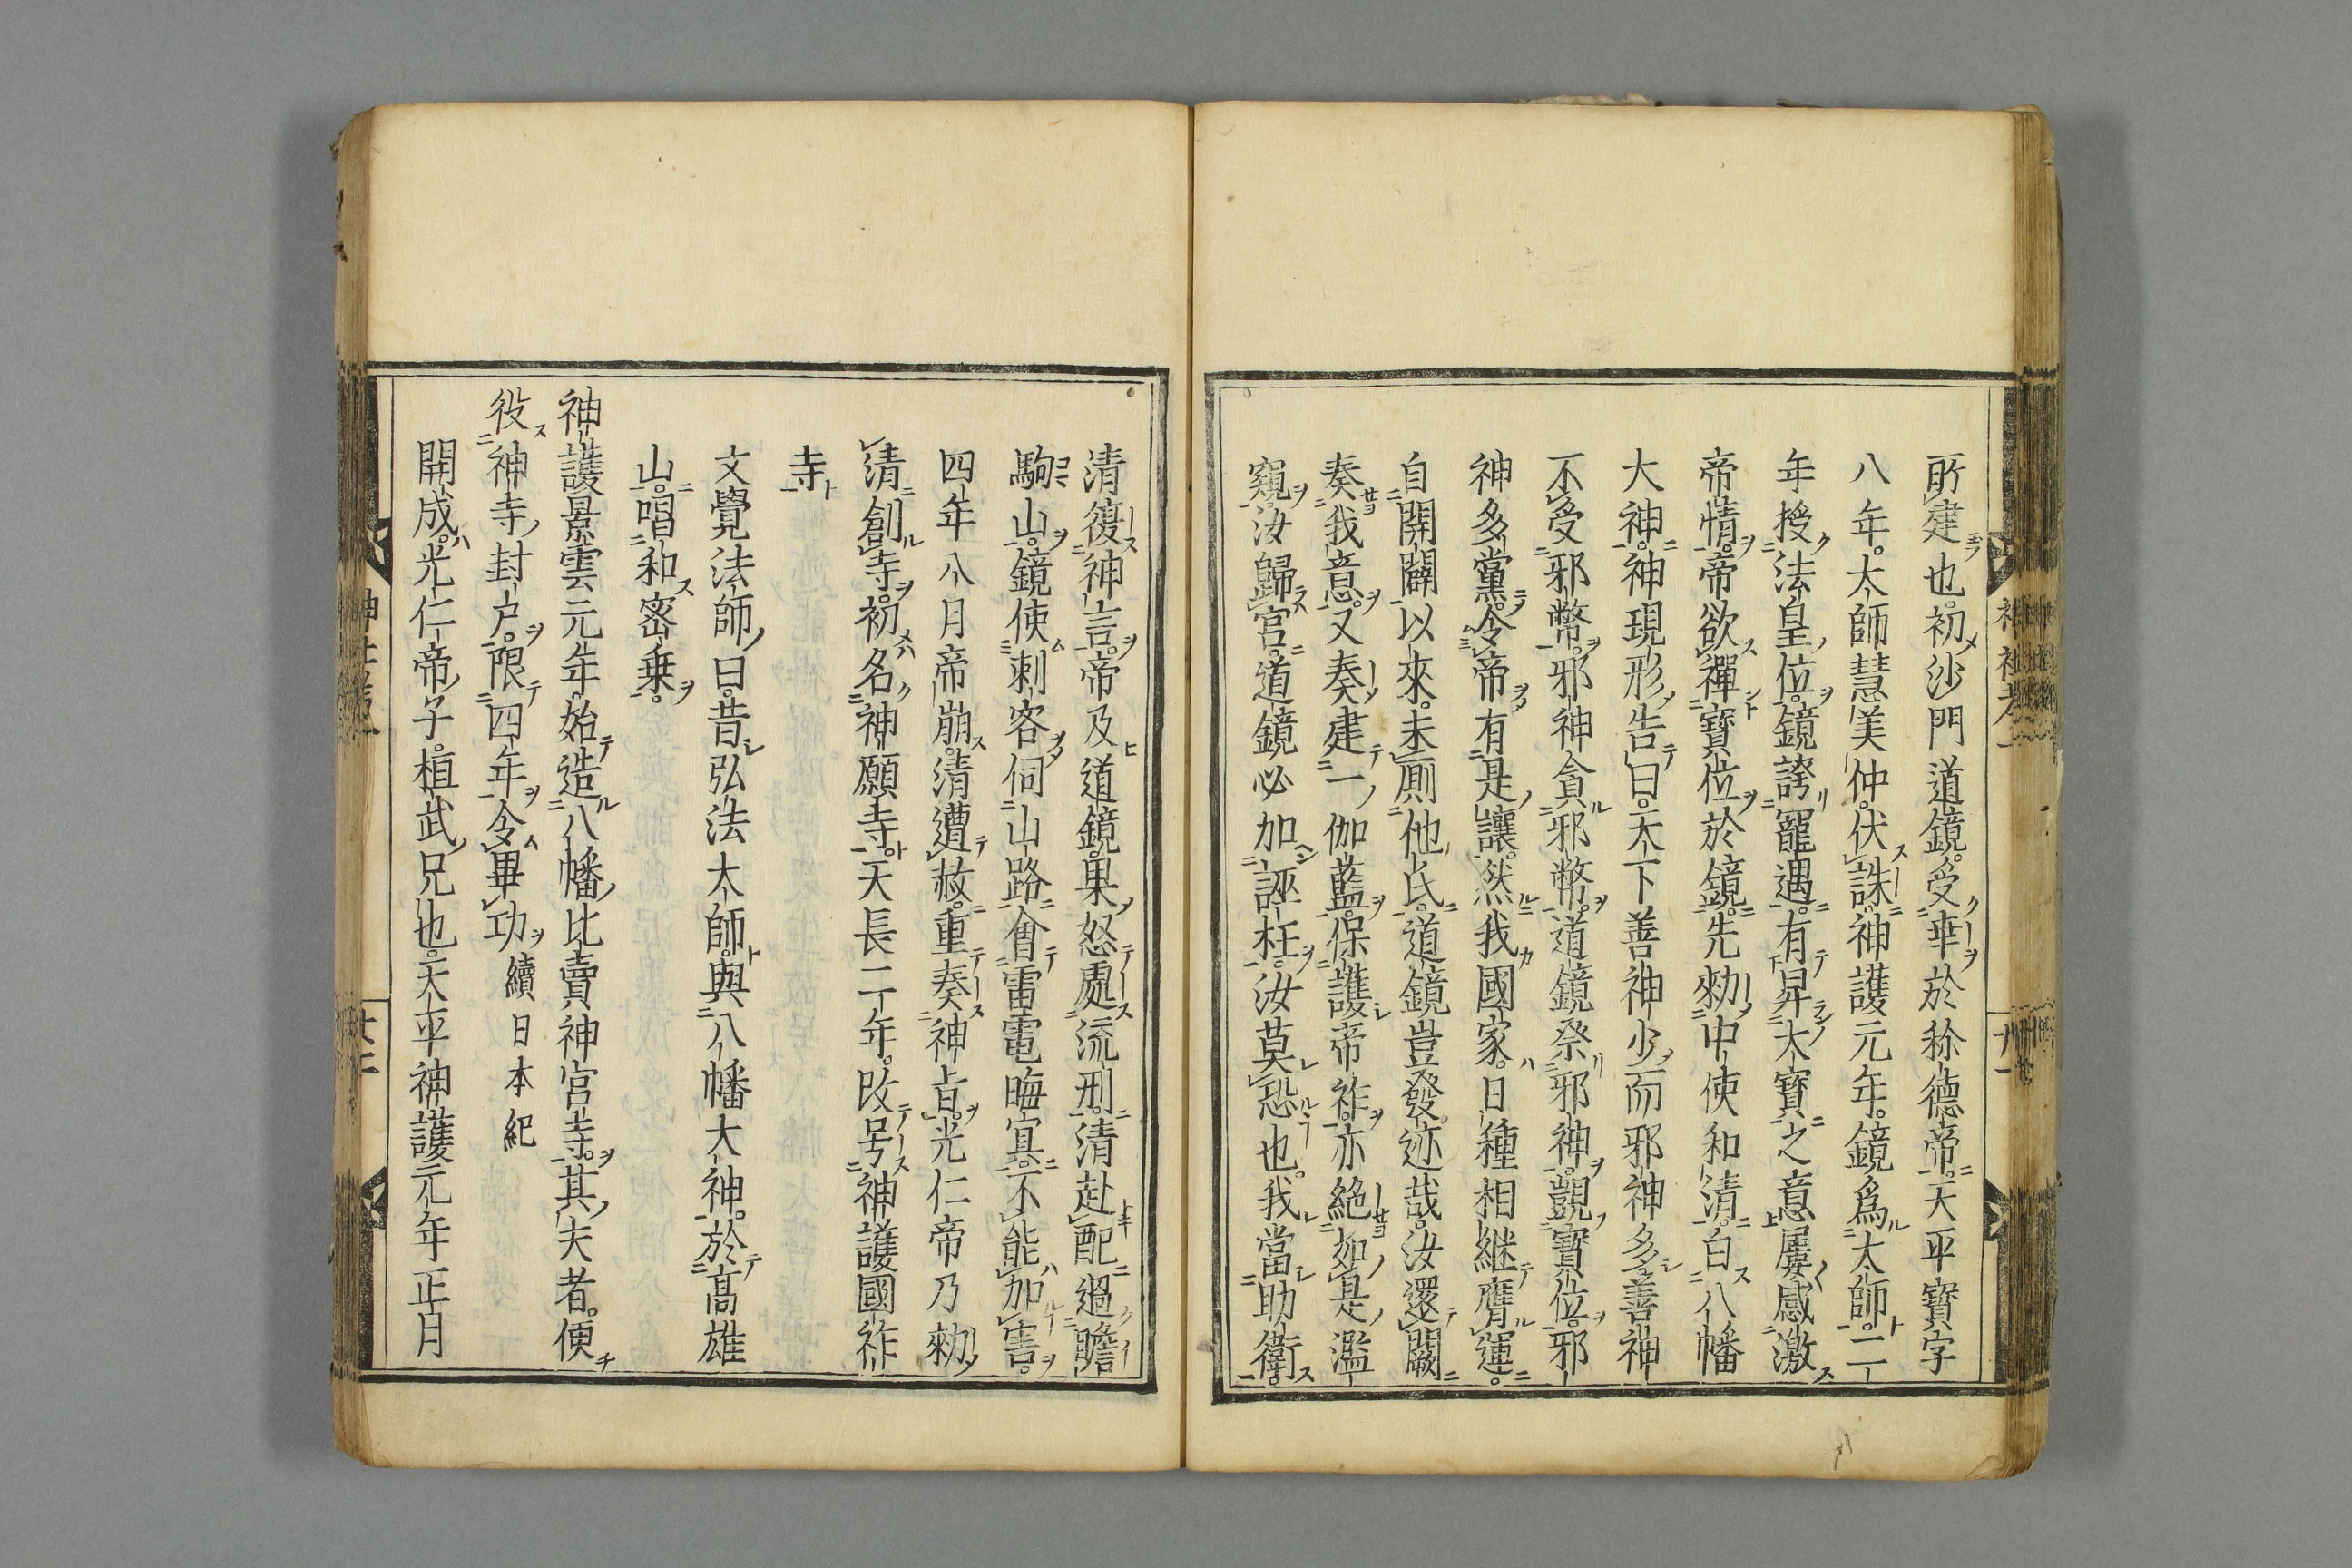 所建也。初沙門道鏡。受幸於称德帝。天平寶字
八年。太師慧美仲。伏誅。神護元年。鏡爲太師。二
年授法皇位。鏡誇寵遇。有昇大寶之意。屢感激
帝情。帝欲禪寶位於鏡。先勑中使和清。白八幡
大神。神現形告曰。天下善神少而邪神多。善神
不受邪幣。邪神貪邪幣。道鏡祭邪神。覬寶位。邪
神多黨。令帝有是讓。然我國家。日種相継膺運。
自開闢以來。未厠他氏。道鏡豈發迹哉。汝還闕
奏我意。又奏建一伽藍。保護帝祚。亦絶如是濫
窺。汝歸宮。道鏡必加誣枉。汝莫恐也。我當助衛。
清復神言。帝及道鏡。果怒處流刑。清赴配過膽
駒山。鏡使刺客伺山路。會雷電晦冥。不能加害。
四年八月帝崩。清遭赦。重奏神旨。光仁帝乃勑
清創寺。初名神願寺。天長二年。改号神護國祚
寺
文覺法師曰。昔弘法大師。與八幡大神。於髙雄
山。唱和密乗。
神護景雲元年。始造八幡比賣神宮寺。其夫者。便
役神寺封户。限四年。令畢功 續日本紀
開成。光仁帝子。桓武兄也。天平神護元年正月
神社考一
廿一